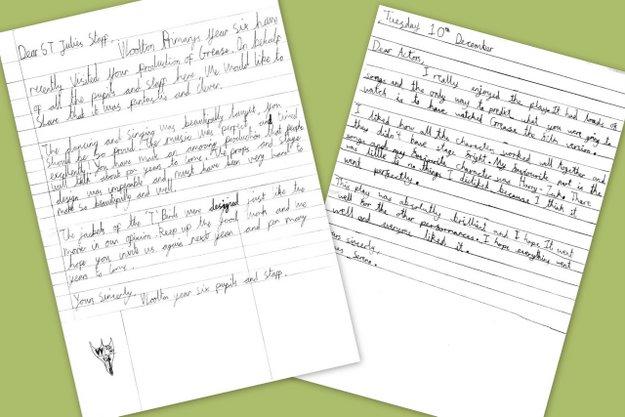 Dear ST Julies Staff,
Woolton Primarys Year six have
recently visited Your production of Grease. On behalf
of all the pupils and staff here, we would like to
share that it was fantastic and clever.
The dancing and singing was beautifully taught, you
should be so proud. The music was peppy and timed
excellently. You have made an amazing production that people
will talk about for years to come. The props and stage
design was and must have been very hard to
make so beautifully and well.
The jackets of the 'T' Birds were designed just like the
movie in our opinion. Keep up the good work and we
hope you invite us again next year and for many
years to come.
Yours Sincerely, Woolton year six pupils and staff.
Tuesday 10th December
Dear Actors,
I really enjoyed the play. It had loads of
songs and the only way to predict what you were going to
watch is to have watched Grease the film version.
I liked how all the characters worked well together and
they didn't have stage fright. My favourite part is the
songs and my favourite character was There
was little to no things I disliked because I think it
went perfectly.
This play was absolutely brilliant and I hope It went
well for the other performances. I hope everything went
well and everyone liked it.
sincerly,